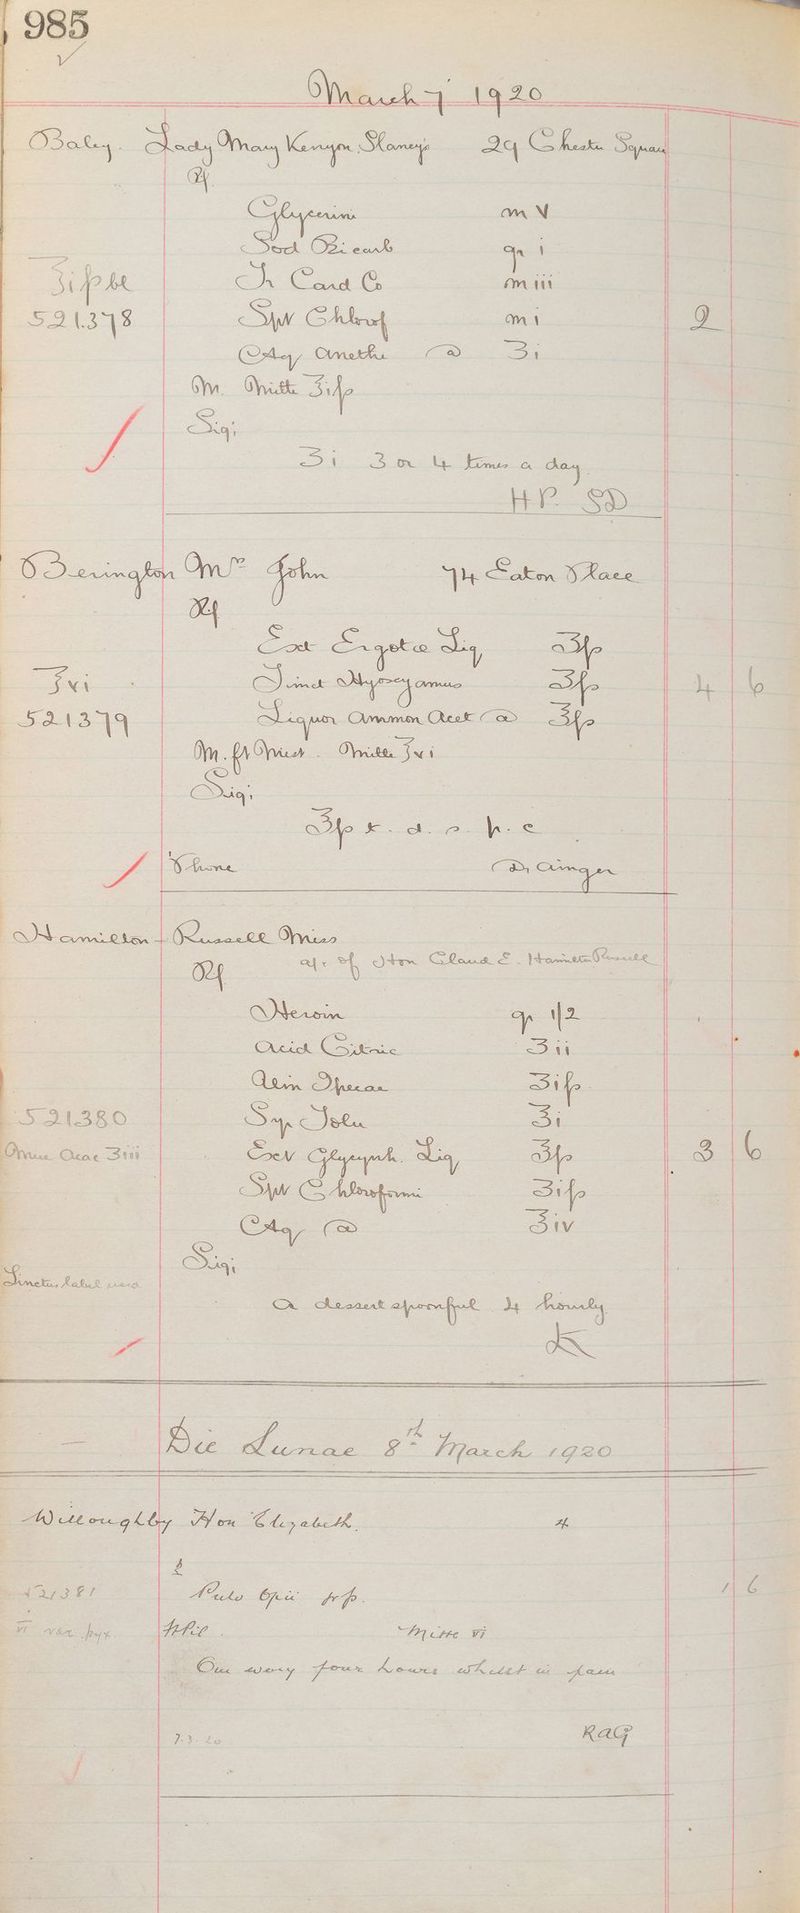 985
March 7 1920
Baby. Lady Mary Kenyon Slaney's 29 Chester Square
Rx
Glycerini m v
Sod Bicarb gr i
Tr Card Co m iii
ʒiſs
521.378
Spt Chlorof m i 2
Aq Anethi @ ʒi
M. Mitte ʒiſs
Sig;
ʒi 3 or 4 times a day.
H.P. SD
Berington Mrs John 74 Eaton Place
Rx
Ext Ergotae Liq ʒſs
℥vi Tinct Hyoscyamus ʒſs 4 6
521379 Liquor Ammon Acet @ ℥ſs
M. ft Mist. Mitte ℥vi
Sig;
℥ſs t. d. s. p. c
'Phone Dr Ainger
Hamilton-Russell Miss
a/c of Hon Claud E. Hamilton Russell
Rx
Heroin gr 1/2
Acid Citric ʒii
Vin Ipecac ʒiſs
521380 Syr Tolu ℥i
Muc Acac ʒiii Ext Glycyrrh. Liq ℥ſs 3 6
Spt Chloroformi ʒiſs
Aq @ ℥iv
Sig;
Linctus label used
A dessertspoonful 4 hourly
K
Die Lunae 8th March 1920
Willoughby Hon Elizabeth. 4
521381 Pulv Opii gr ſs. 1 6
Ft Pil. Mitte vi
One every four hours whilst in pain
7.3.20 RAG